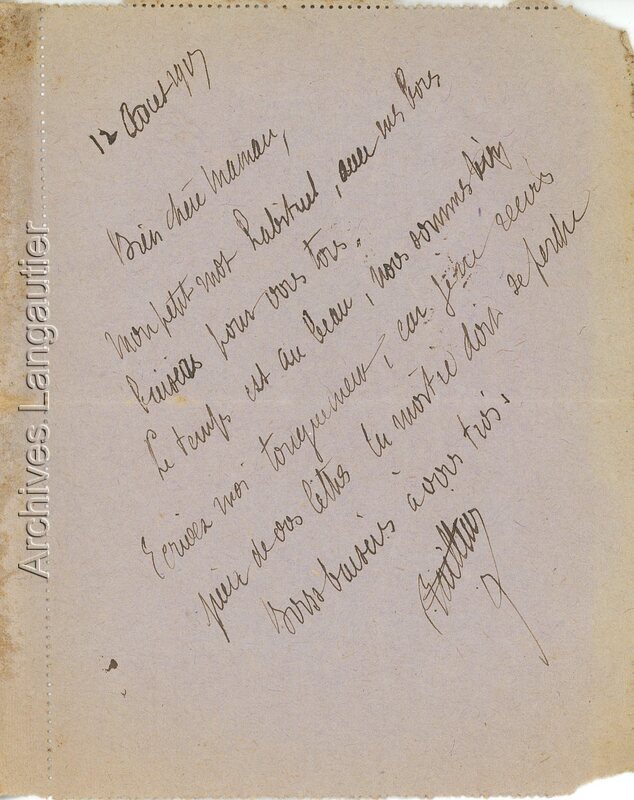 12 Aout 1917
Bien chère Maman,
Mon petit mot habituel, avec mes bons
baisers pour vous tous.
Le temps est au beau, nous sommes bien
Ecrivez moi longuement, car je ne reçois
plus de vos lettres la moitié doit se perdre
Bons baisers à vous trois.
Archives Langautier